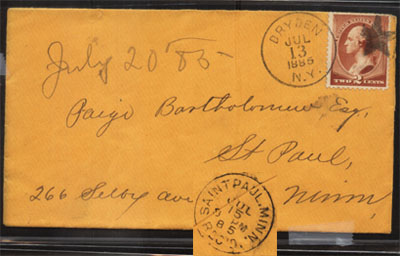 DRYDEN
JUL
13
1885
N.Y.
UNITED STATES POSTAGE
TWO 2 CENTS
July 20 85
Paige Bartholomew Esq,
St Paul,
266 Selby ave
Minn,
SAINT PAUL. MINN.
JUL
15
PM
85
REC'D.